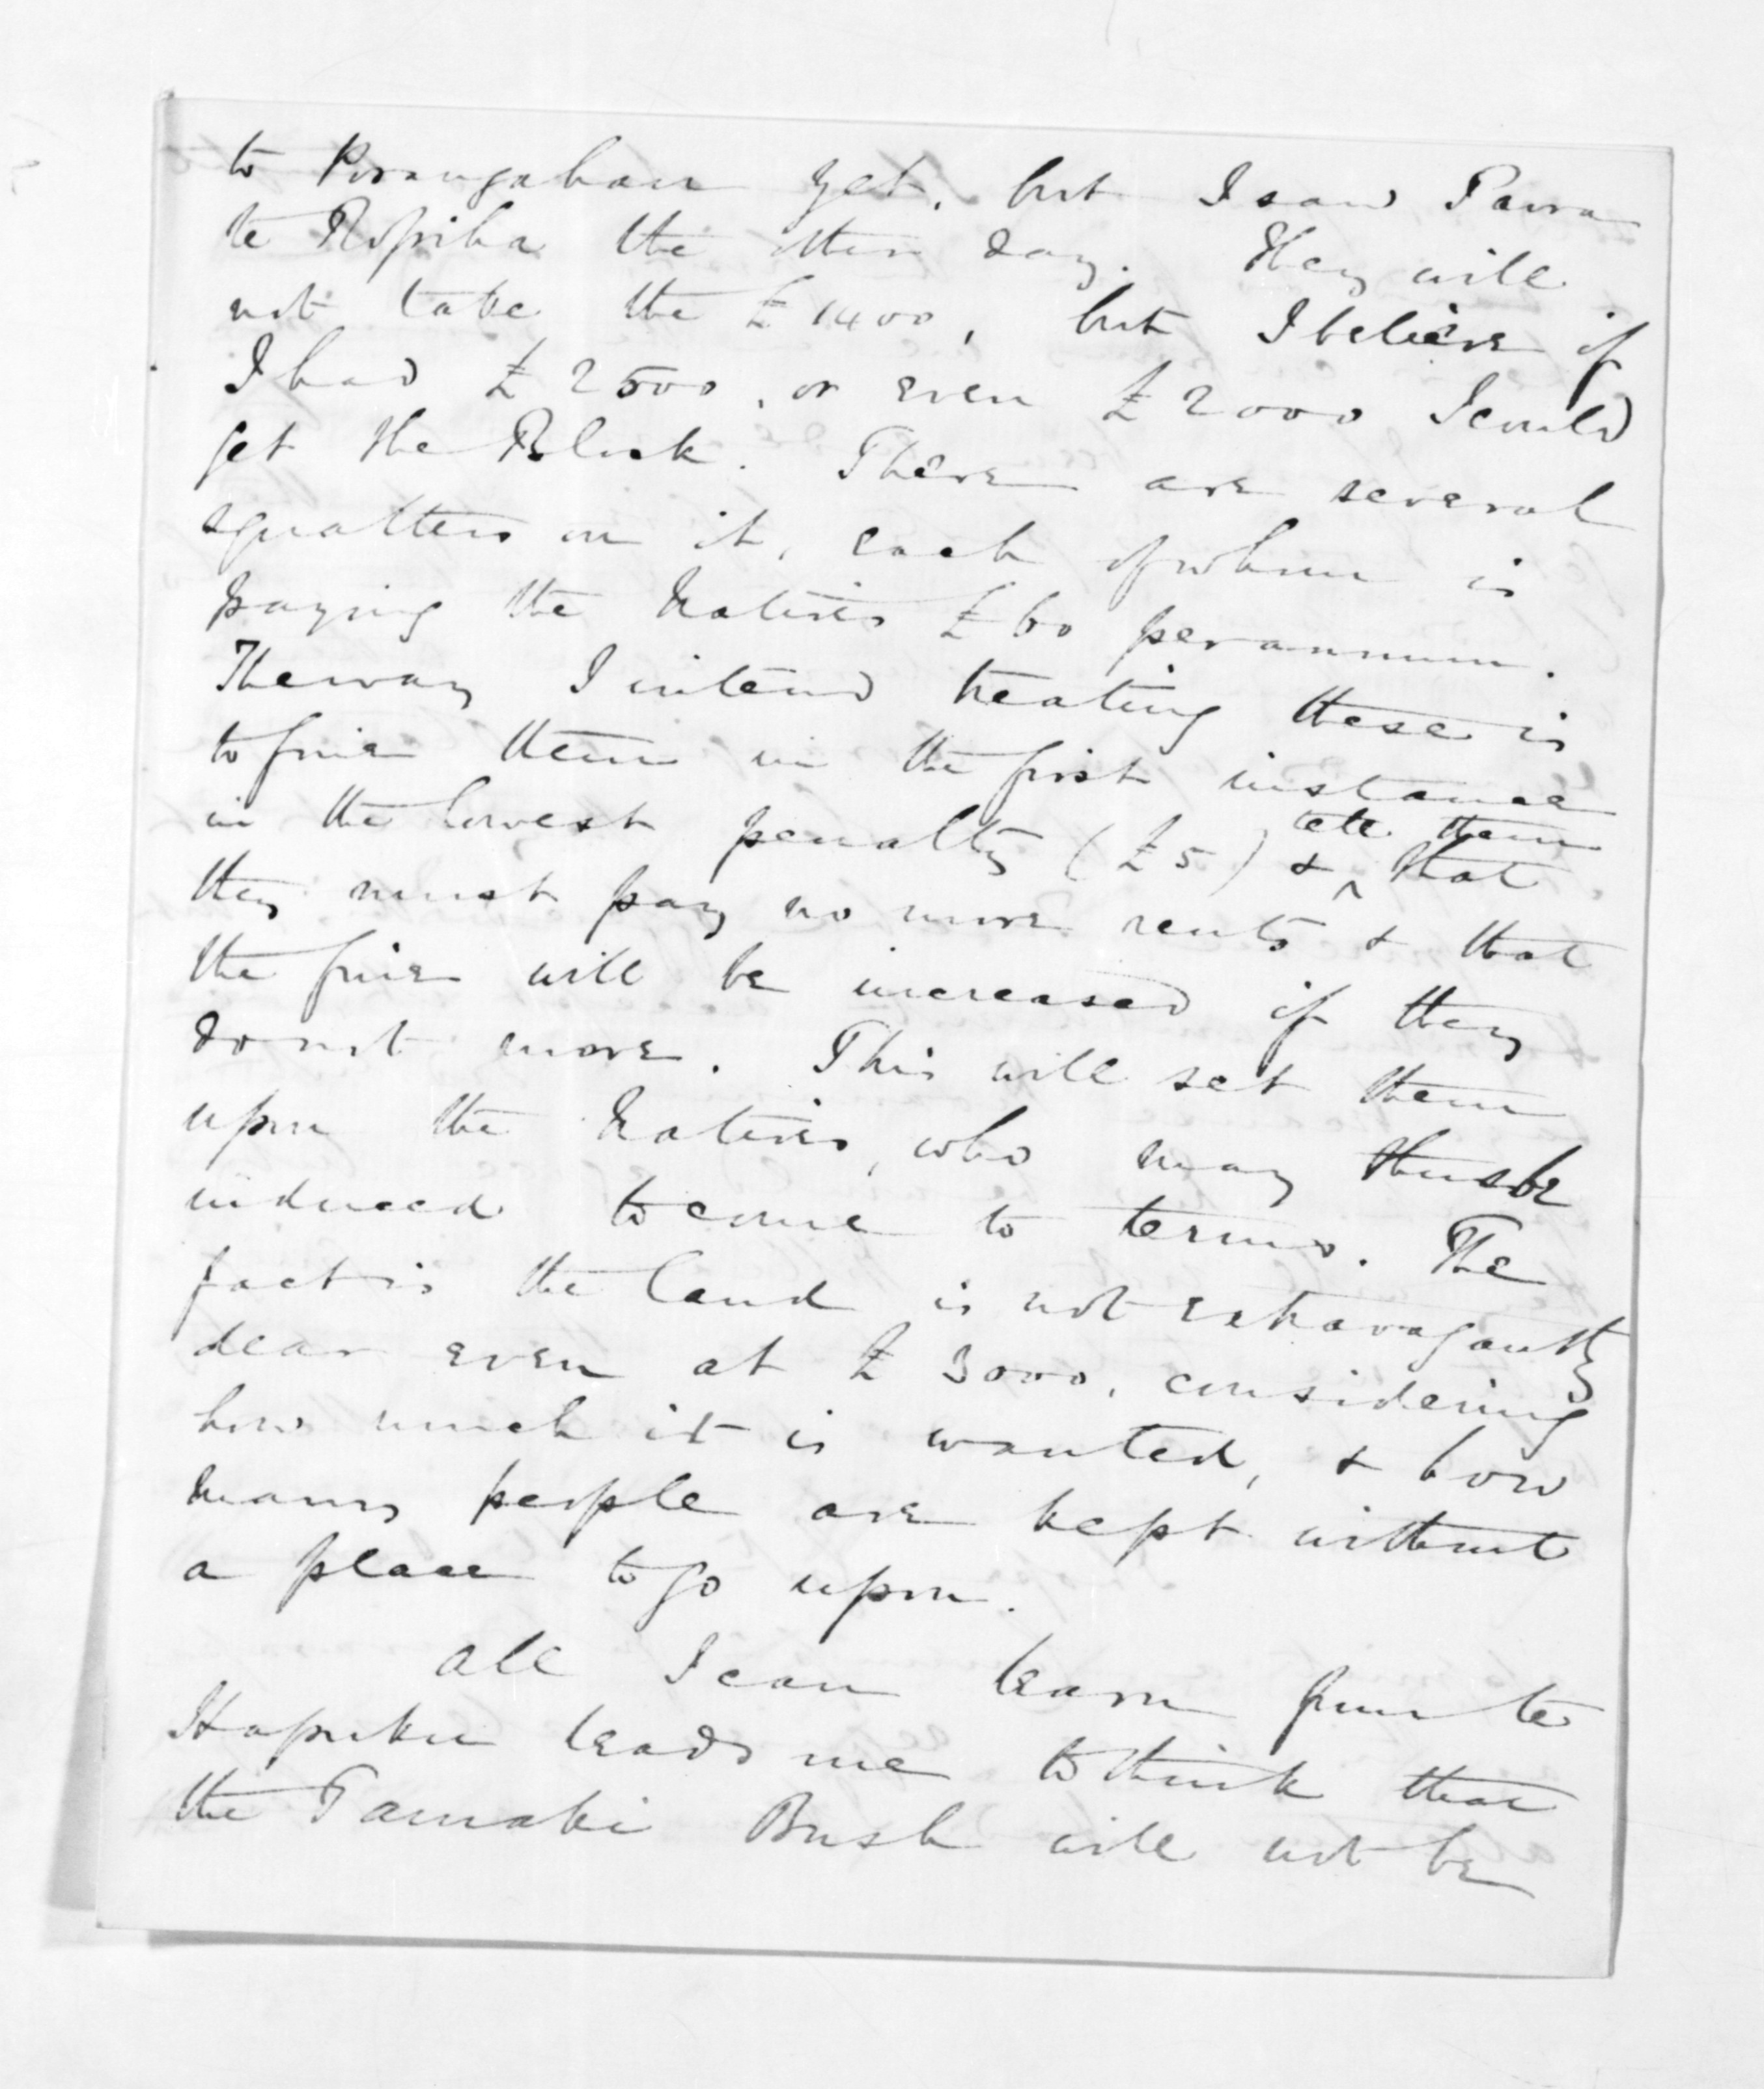 to Porangahau yet, but I saw Paora
te Ropiha the other day. They will
not take the £1400, but I believe if
I had £2500, or even £2000 I could
get the Block. There are several
squatters on it, each of whom is
paying the Natives £60 per annum.
The way I intend treating these is
to fine them in the first instance
in the lowest penalty (£5) & tell them that
they must pay no more rents & that
the fine will be increased if they
do not move. This will set them
upon the Natives, who may thus be
induced to come to terms. The
fact is the land is not extravagantly
dear even at £3000, considering
how much it is wanted, & how
many people are kept without
a place to go upon.
All I can learn from te
Hapuku leads me to think that
the Tamaki Bush will not be